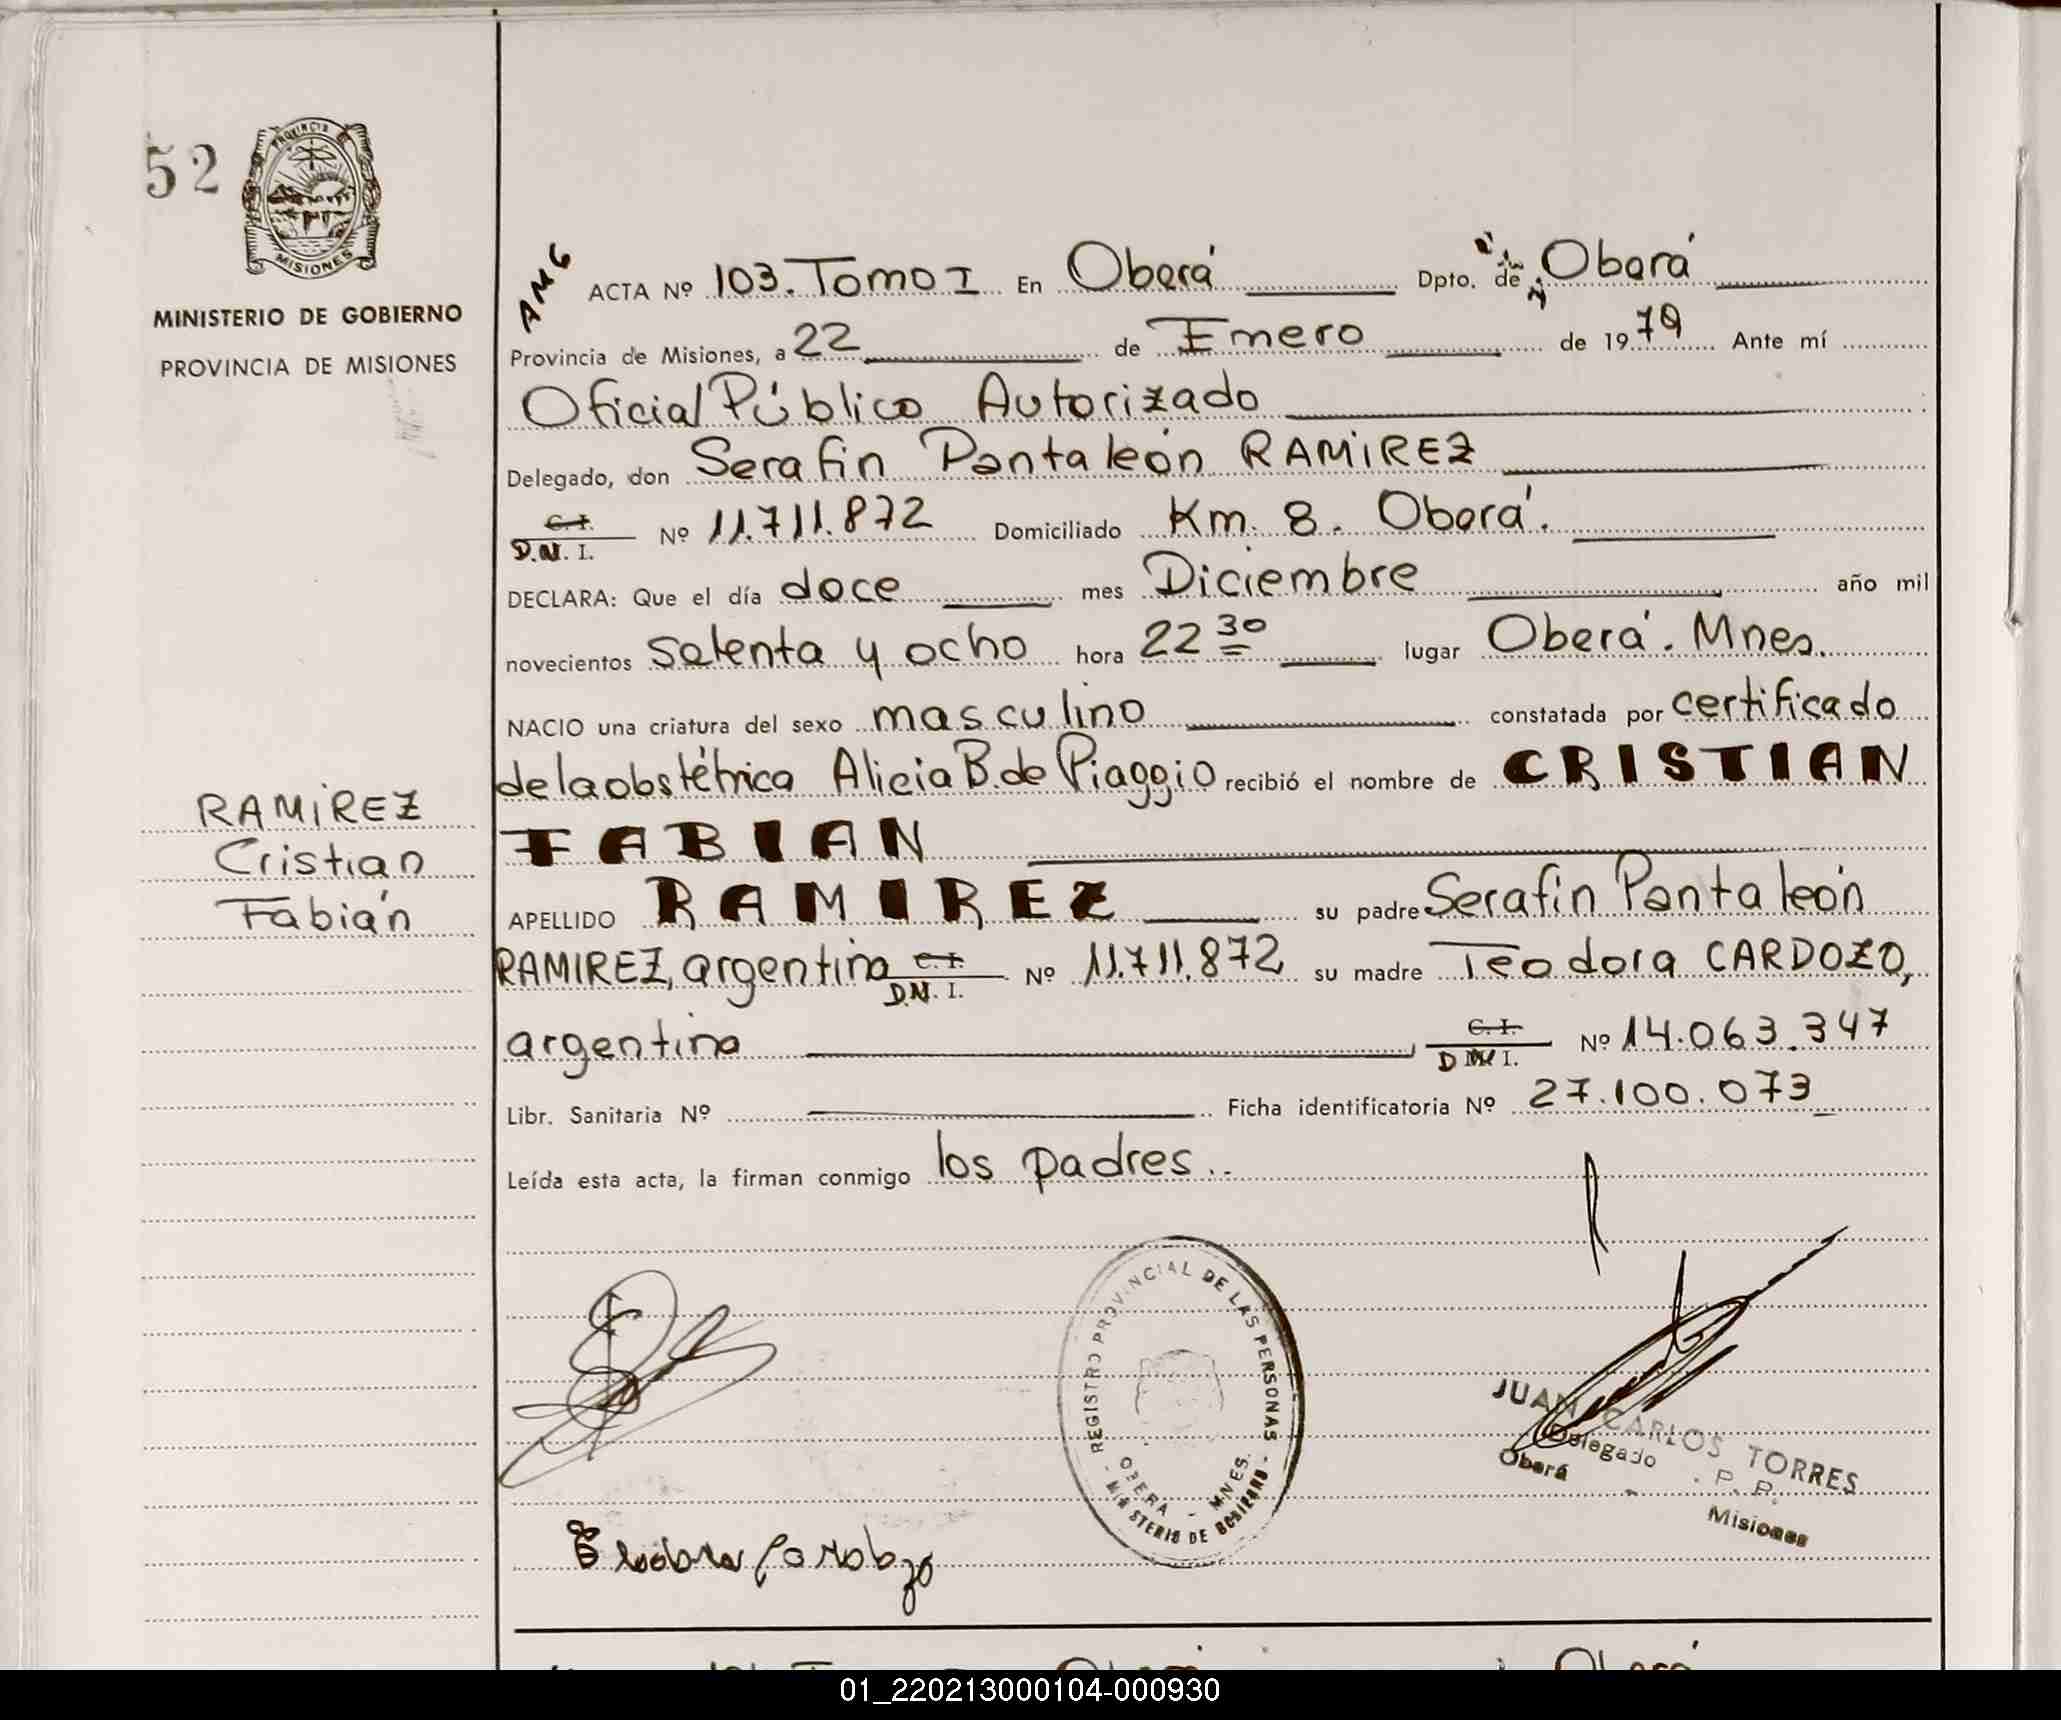 52
PROVINCIA DE
MISIONES
MINISTERIO DE GOBIERNO
PROVINCIA DE MISIONES
RAMIREZ
Cristian
Fabián
ACTA Nº 103. Tomo I En Oberá Dpto. de Oberá
Provincia de Misiones, a 22 de Enero de 1979 Ante mí
Oficial Público Autorizado
Delegado, don Serafin Pantaleón RAMIREZ
C.I. D.N.I. Nº 11.711.872 Domiciliado Km. 8. Oberá.
DECLARA: Que el día doce mes Diciembre año mil
novecientos setenta y ocho hora 22 30 lugar Oberá. Mnes.
NACIO una criatura del sexo masculino constatada por certificado
de la obstétrica Alicia B. de Piaggio recibió el nombre de CRISTIAN
FABIAN
APELLIDO RAMIREZ su padre Serafin Pantaleón
RAMIREZ, argentino C.I. D.N.I. Nº 11.711.872 su madre Teodora CARDOZO,
argentina C.I. D.N.I. Nº 14.063.347
Libr. Sanitaria Nº Ficha identificatoria Nº 27.100.073
Leída esta acta, la firman conmigo los padres.
REGISTRO PROVINCIAL DE LAS PERSONAS
OBERA - MNES.
MINISTERIO DE GOBIERNO
JUAN CARLOS TORRES
Delegado R. P. P.
Oberá Misiones
01_220213000104-000930